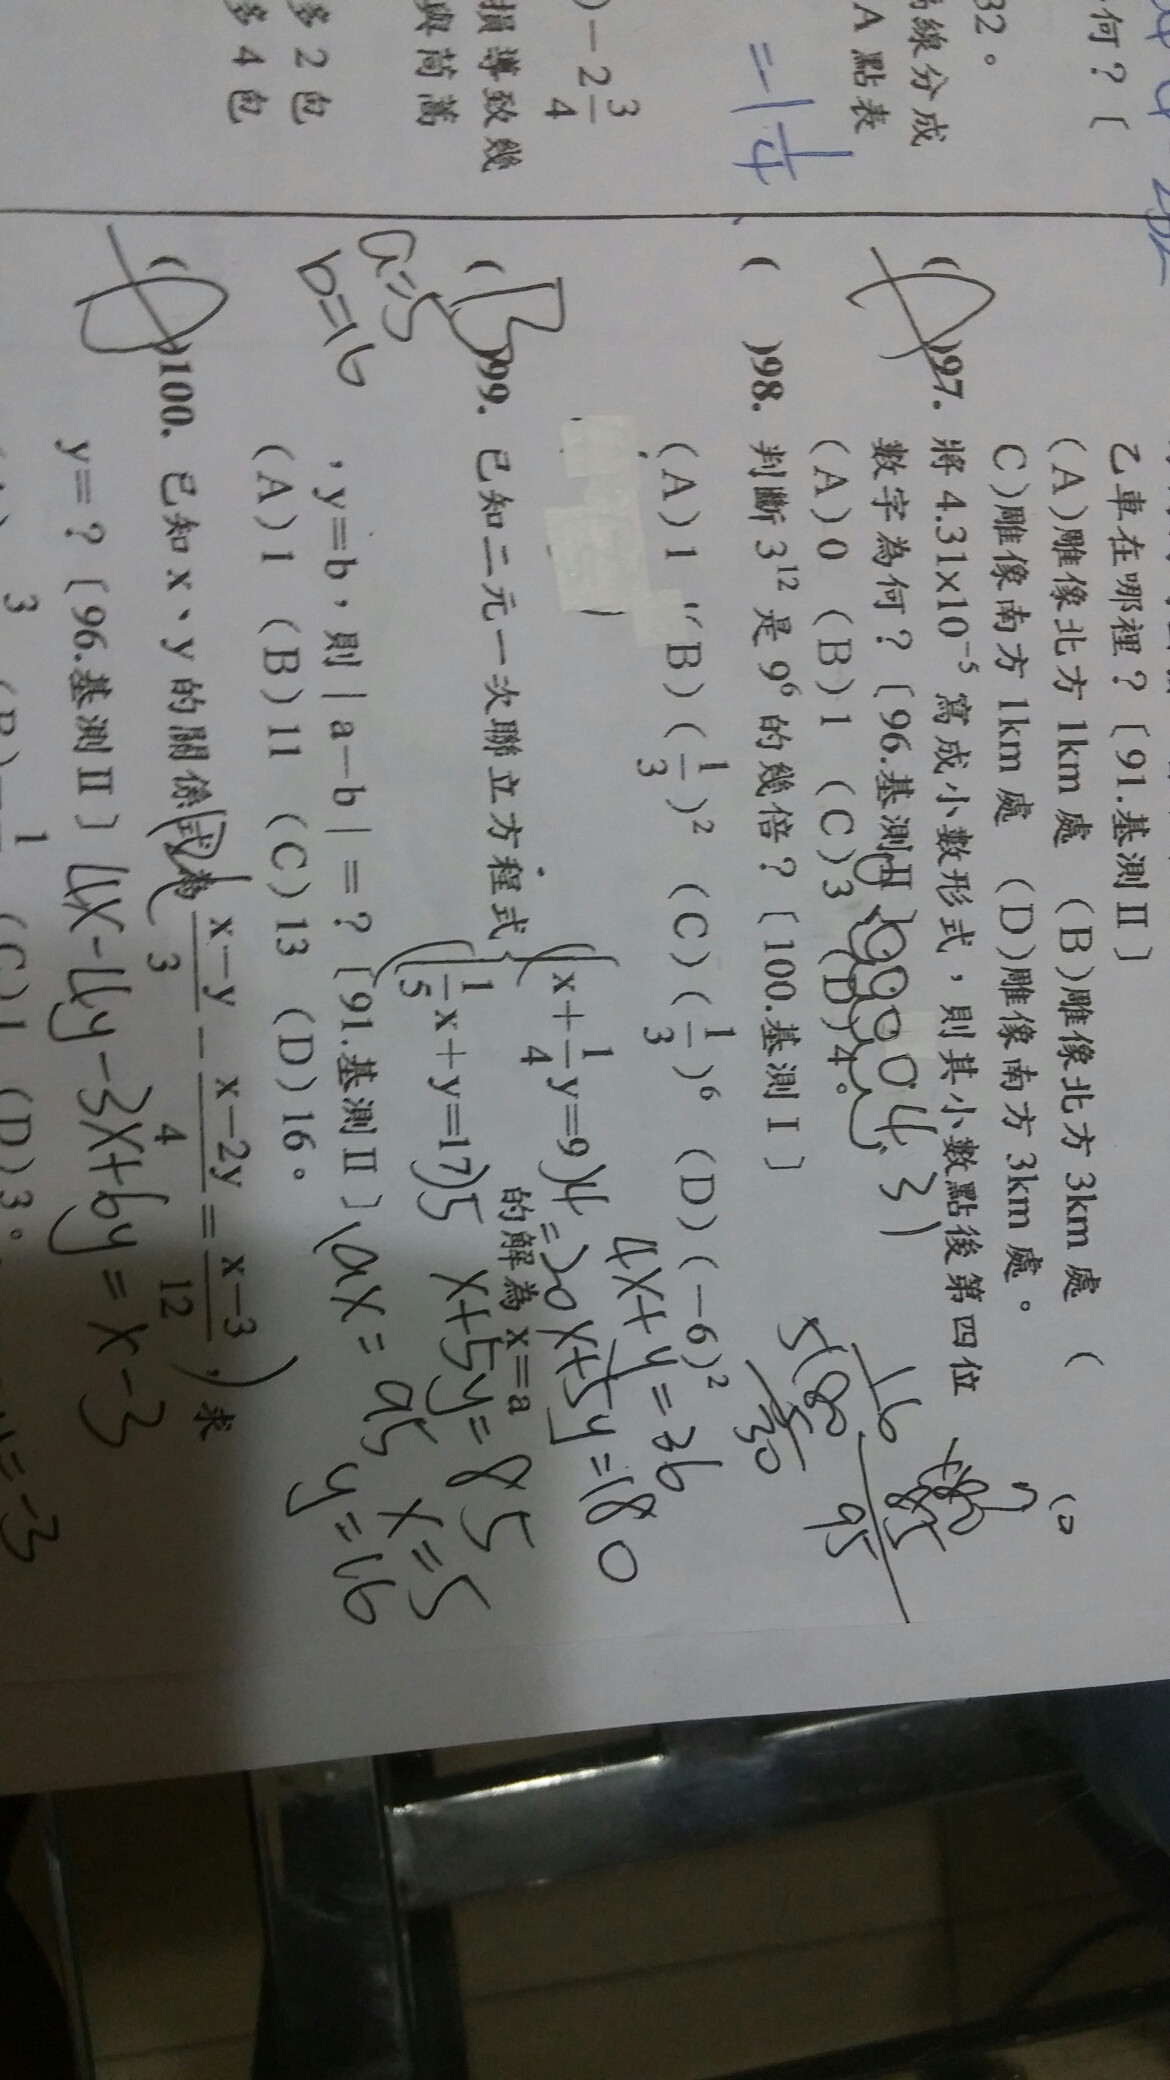 何？〔
32。
線分成
A 點表
=-1 1/4
)－2 3/4
損導致幾
與茼蒿
多 2 包
多 4 包
乙車在哪裡？〔91.基測Ⅱ〕
(A)雕像北方 1km 處 (B)雕像北方 3km 處 (
C)雕像南方 1km 處 (D)雕像南方 3km 處。
( )97. 將 4.31×10⁻⁵ 寫成小數形式，則其小數點後第四位
數字為何？〔96.基測Ⅱ〕
(A)0 (B)1 (C)3 (D)4。
( )98. 判斷 3¹² 是 9⁶ 的幾倍？〔100.基測Ⅰ〕
(A)1 (B)(1/3)² (C)(1/3)⁶ (D)(－6)²
16
5)80
30
95
4x+y=36
=20x+5y=180
(B)99. 已知二元一次聯立方程式 { x+1/4 y=9 )4
1/5 x+y=17 )5
的解為 x=a
，y=b，則｜a－b｜=？〔91.基測Ⅱ〕
(A)1 (B)11 (C)13 (D)16。
a=5
b=16
x+5y=85
19x=95
x=5
y=16
( )100. 已知 x、y 的關係式為 (x－y)/3 － (x－2y)/4 = (x－3)/12，求
y=？〔96.基測Ⅱ〕
4x-4y-3x+6y=x-3
(C)1 (D)3。
=-3